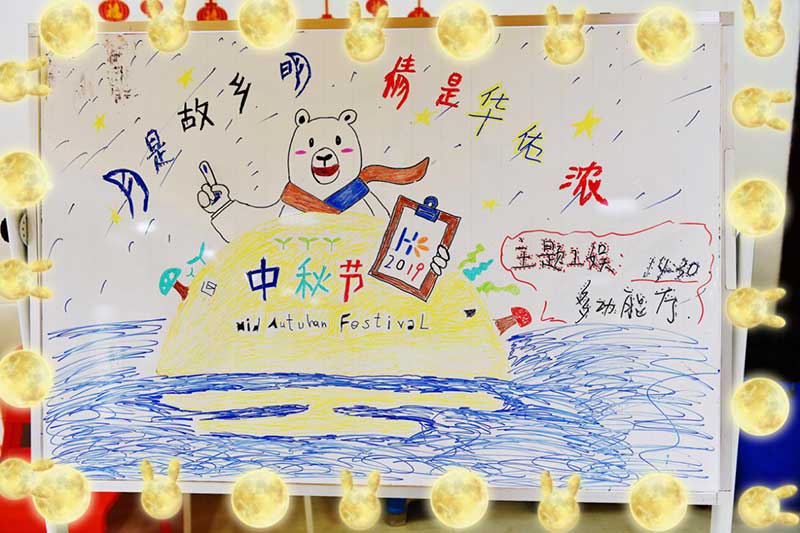 月是故乡明
情是华佑浓
2019
中秋节
Mid Autuhan FestivaL
主题工娱: 14:30
多功能厅